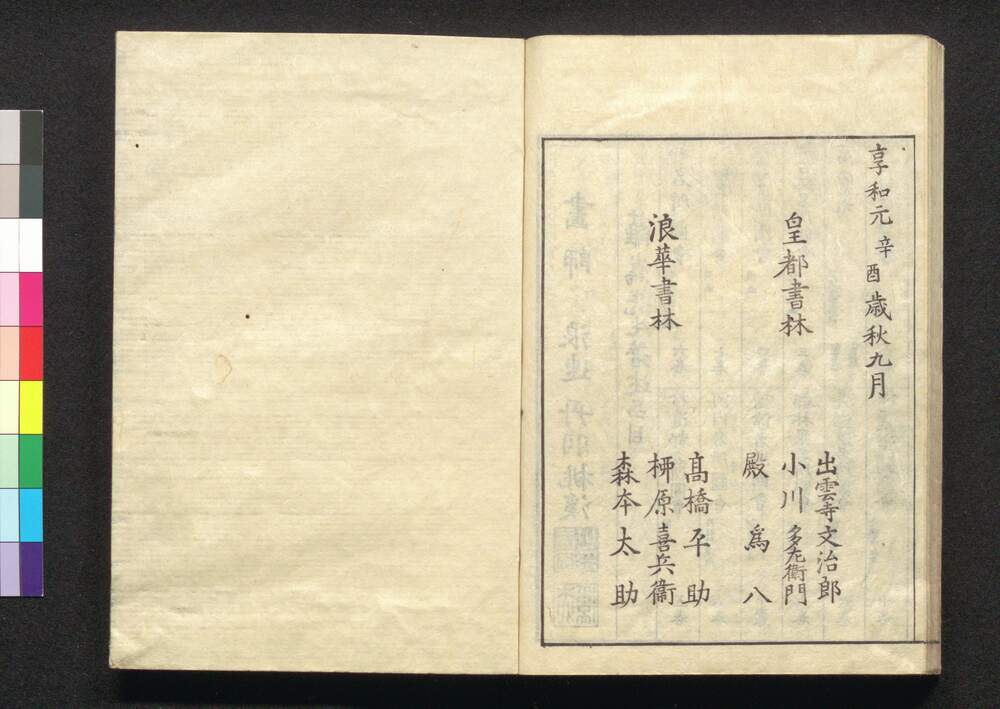 享和元辛酉歳秋九月
皇都書林
出雲寺文治郎
小川多左衛門
殿為八
浪華書林
髙橋平助
柳原喜兵衞
森本太助